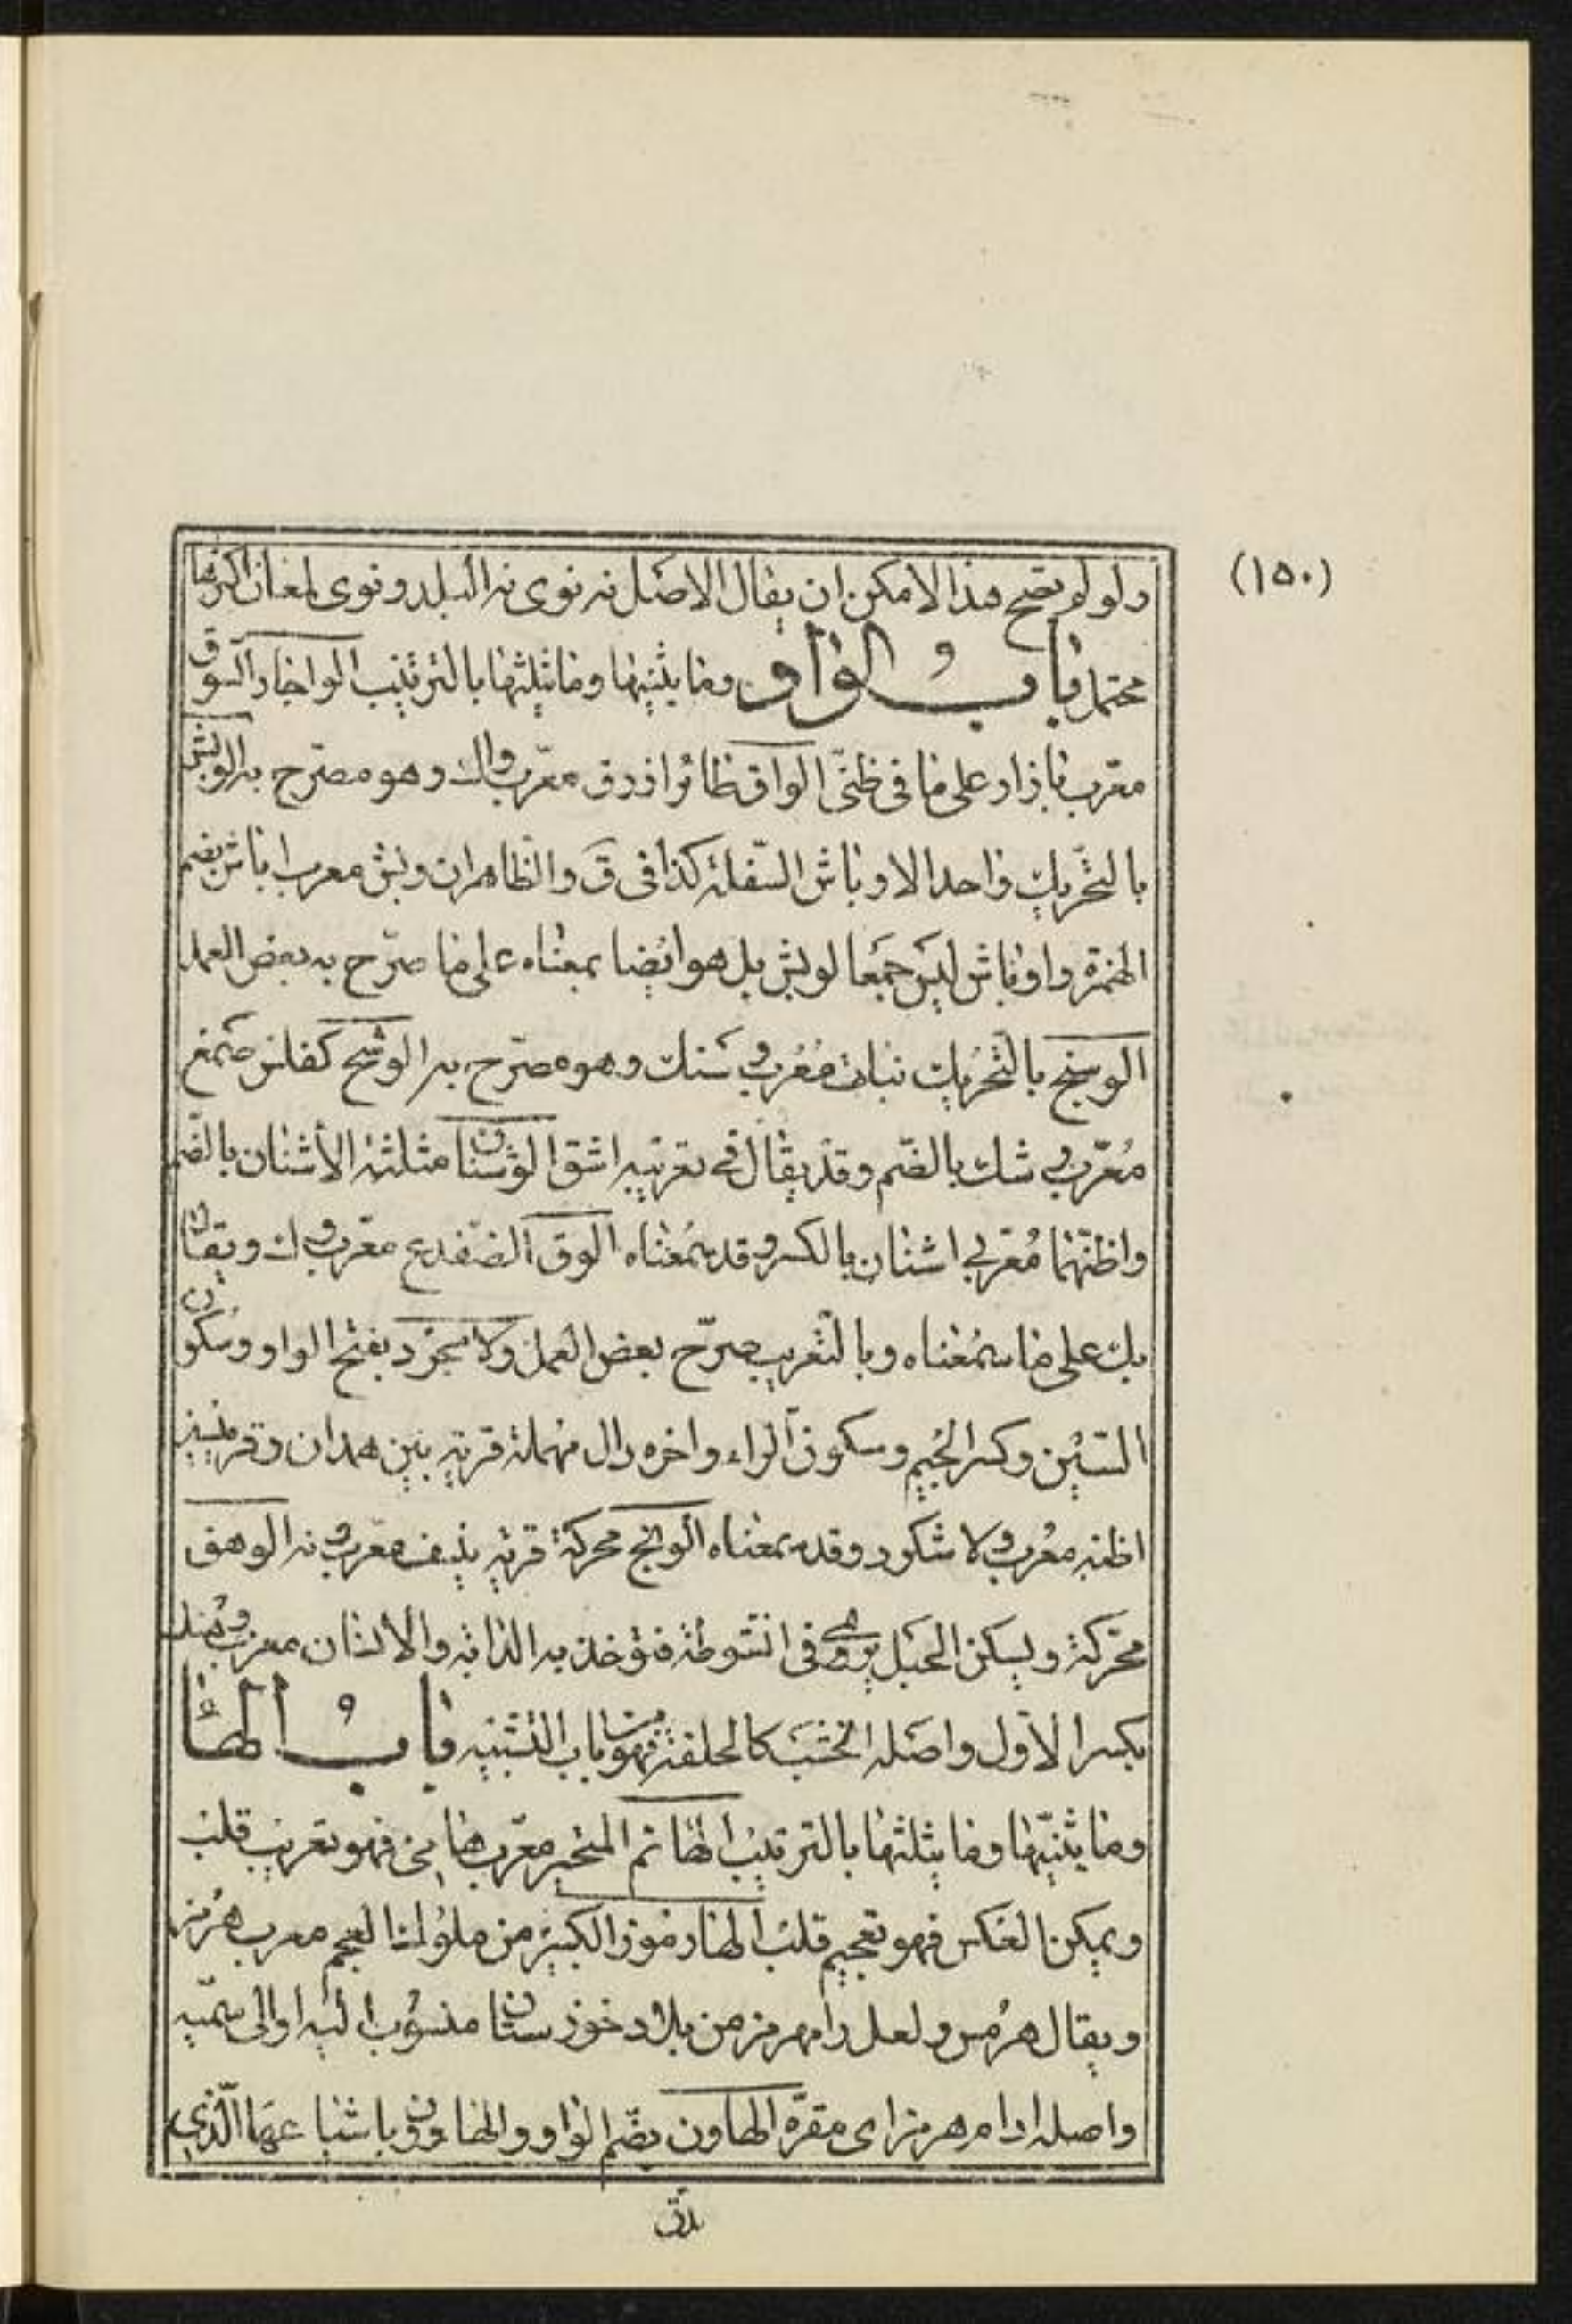 (١٥٠)
ولو لم يصح هذا لأمكن ان يقال الاصل نه نوى نه البلد ونوى لمعان اكثرها
محتمل باب الواو وما يثنيها وما يثلثها بالترتيب الواجار السوق
معرب بازار على ما فى ظنى الواق طائر ازرق معرب واك وهو مصرح به الوبش
بالتحريك واحد الاوباش السفلة كذا فى ق والظاهر ان وبش معرب اباش بضم
الهمزة واوباش ليس جمعا لوبش بل هو ايضا بمعناه على ما صرح به بعض العمل
الوسنج بالتحريك نبات معرب وسنك وهو مصرح به الوشح كفلس صمغ
معرب وشك بالضم وقد يقال فى تعريبه اشق الوشنان مثلثة الأشنان بالضم
واظنهما معربى اشنان بالكسر وقد سمعناه الوق الضفدع معرب وك ويقال
بك على ما سمعناه وبالتعريب صرح بعض العمل ولاسجرد بفتح الواو وسكون
السين وكسر الجيم وسكون الراء واخره دال مهملة قرية بين همدان وقرميسين
اظنه معرب ولاشكرد وقد سمعناه الونج محركة قرية بنسف معرب ونه الوهق
محركة ويسكن الحبل يرمى فى انشوطة فتؤخذ به الدابة والانسان معرب وهنك
بكسر الاول واصله الخشب كالحلقة فهو من باب التشبيه باب الهاء
وما يثنيها وما يثلثها بالترتيب الهائم المتحير معرب هايى فهو تعريب قلب
ويمكن العكس فهو تعجيم قلب الهارموز الكبير من ملوك العجم معرب هرمز
ويقال هرمس ولعل رامهرمز من بلاد خوزستان منسوب اليه او الى سميه
واصله ارام هرمز اى مقره الهاون بضم الواو والهاوون باشباعها الذى
يدق